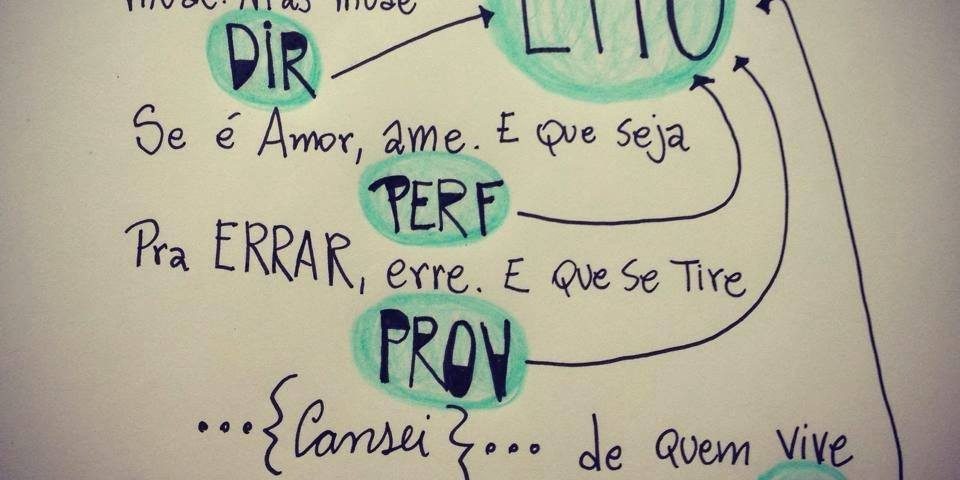 DIR
EITO
Se é Amor, ame. E que seja
PERF
Pra ERRAR, erre. E que se Tire
PROV
...{Cansei}... de quem vive